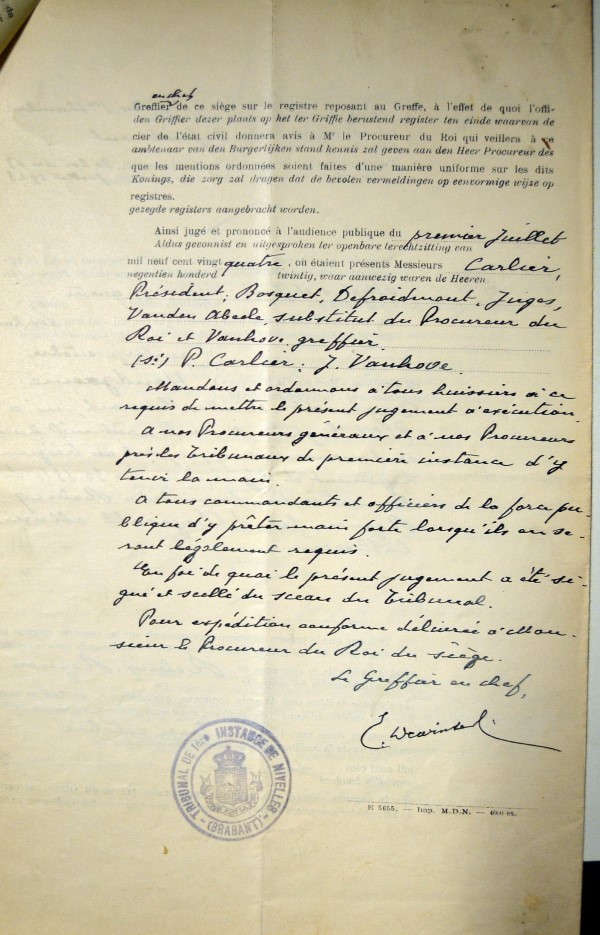 en chef
Greffier de ce siège sur le registre reposant au Greffe, à l'effet de quoi l'offi-
den Griffier dezer plaats op het ter Griffie berustend register ten einde waarvan de
cier de l'état civil donnera avis à Mr le Procureur du Roi qui veillera à ce
ambtenaar van den Burgerlijken stand kennis zal geven aan den Heer Procureur des
que les mentions ordonnées soient faites d'une manière uniforme sur les dits
Konings, die zorg zal dragen dat de bevolen vermeldingen op eenvormige wijze op
registres.
gezegde registers aangebracht worden.
Ainsi jugé et prononcé à l'audience publique du premier Juillet
Aldus gevonnist en uitgesproken ter openbare terechtzitting van
mil neuf cent vingt quatre, où étaient présents Messieurs Carlier,
negentien honderd twintig, waar aanwezig waren de Heeren
Président, Bosquet, Defroidmont, Juges,
Vanden Abeele, substitut du Procureur du
Roi et Vanhove, greffier.
(sé) P. Carlier; J. Vanhove.
Mandons et ordonnons à tous huissiers à ce
requis de mettre le présent jugement à exécution.
A nos Procureurs généraux et à nos Procureurs
près les Tribunaux de première instance d'y
tenir la main.
A tous commandants et officiers de la force pu-
blique d'y prêter main forte lorsqu'ils en se-
ront légalement requis.
En foi de quoi le présent jugement a été si-
gné et scellé du sceau du Tribunal.
Pour expédition conforme délivrée à Mon-
sieur le Procureur du Roi du siège.
Le Greffier en chef,
TRIBUNAL DE 1ère INSTANCE DE NIVELLES
(BRABANT)
E 5655. — Imp. M.D.N. —